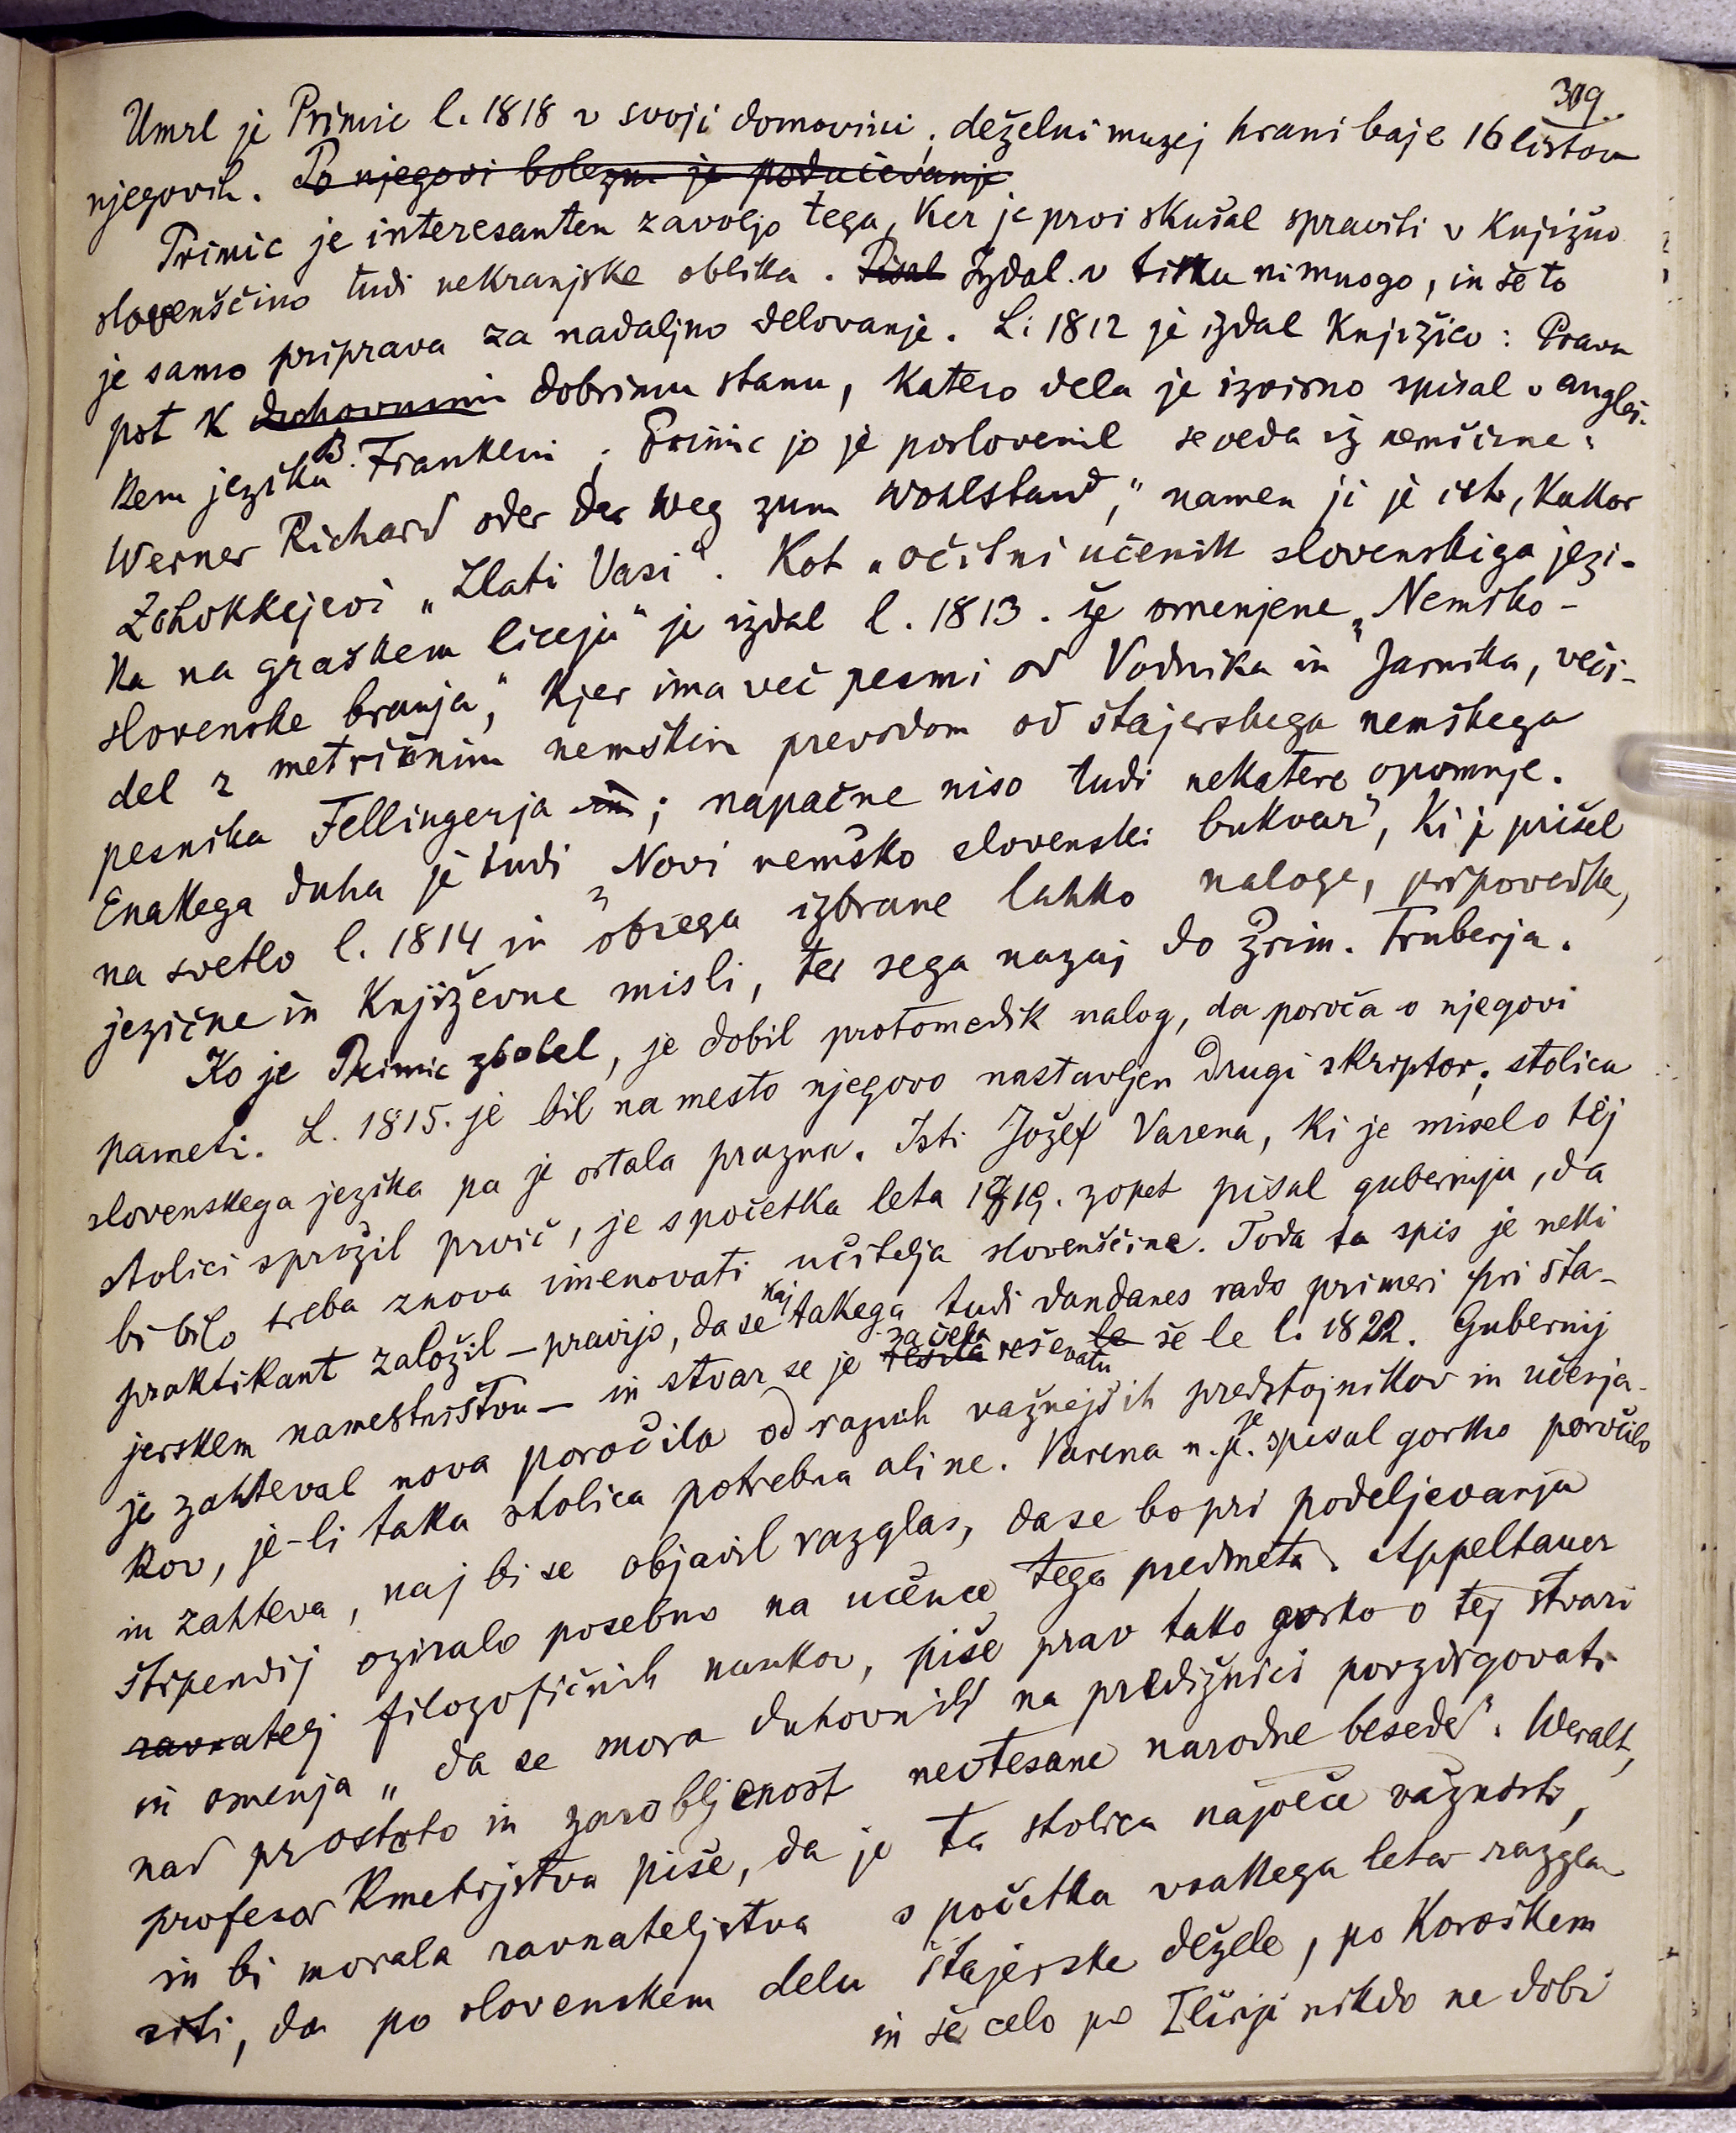 309.
Umrl je Primic l. 1818 v svoji domovini; deželni muzej hrani baje 16 listov
njegovih. Po njegovi bolezni je podučevanje
Primic je interesanten zavoljo tega, ker je prvi skušal spraviti v knjižno
slovenščino tudi nekranjske oblika. Pisal Izdal v tisku ni mnogo, in še to
je samo priprava za nadaljno delovanje. L. 1812 je izdal knjižico: Prava
pot k duhovnimi dobrimu stanu, katero dela je izvirno spisal v angleš-
kem jeziku B. Franklin; Primic jo je poslovenil seveda iz nemščine:
Werner Richard oder der Weg zum Wohlstand," namen ji je isti, kakor
Zchokkejevi „Zlati Vasi". Kot „očitni učenik slovenskiga jezi-
ka na graškem liceju" je izdal l. 1813. še omenjene „Nemško-
slovenske branja," kjer ima več pesmi od Vodnika in Jarnika, veči-
del z metričnim nemškim prevodom od štajerskega nemškega
pesnika Fellingerja in; napačne niso tudi nekatere opomnje.
Enakega duha je tudi „Novi nemško slovenski bukvar", ki je prišel
na svetlo l. 1814 in obsega izbrane lahko naloge, pripovedke,
jezične in književne misli, ter sega nazaj do Prim. Truberja.
Ko je Primic zbolel, je dobil protomedik nalog, da poroča o njegovi
pameti. L. 1815. je bil na mesto njegovo nastavljen drugi skriptor; stolica
slovenskega jezika pa je ostala prazna. Isti Jožef Varena, ki je misel o tej
stolici sprožil prvič, je spočetka leta 1819. zopet pisal guberniju, da
bi bilo treba znova imenovati učitelja slovenščine. Toda ta spis je neki
praktikant založil – pravijo, da se kaj takega tudi dandanes rado primeri pri šta-
jerskem namestništvu – in stvar se je rešila začela reševati le še le l. 1822. Gubernij
je zahteval nova poročila od raznih važnejših predstojnikov in učenja-
kov, je-li taka stolica potrebna ali ne. Varena n. p. je spisal gorko poročilo
in zahteva, naj bi se objavil razglas, da se bo pri podeljevanju
štipendij oziralo posebno na učence tega predmeta. Appeltauer
ravnatelj filozofičnih naukov, piše prav tako gorko o tej stvari
in omenja „da se mora duhovnik na predižnici povzdigovati
nad prostoto in zarobljenost neotesane narodne besede". Weralt,
profesor kmetijstva piše, da je ta stolica največe važnosti,
in bi morala ravnateljstva s početka vsakega leta razgla
siti, da po slovenskem delu štajerske dežele, po Koroškem
in še celo po Iliriji nikdo ne dobi